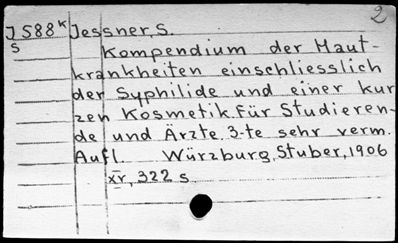 2
J588ᵏ Jessner, S.
S
Kompendium der Haut-
krankheiten einschliesslich
der Syphilide und einer kur
zen Kosmetik.für Studieren-
de und Ärzte. 3-te sehr verm.
Aufl. Würzburg, Stuber, 1906
XV, 322 s.